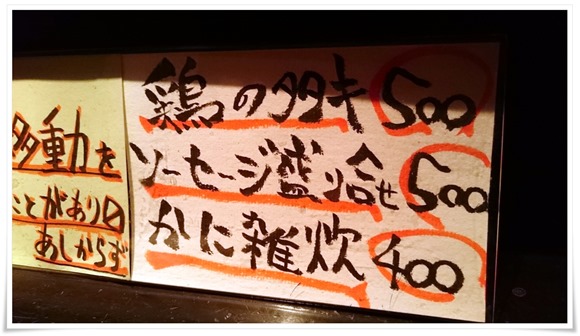 鶏のタタキ 500
ソーセージ盛り合せ 500
かに雑炊 400
多動を
ことがあり
あしからず